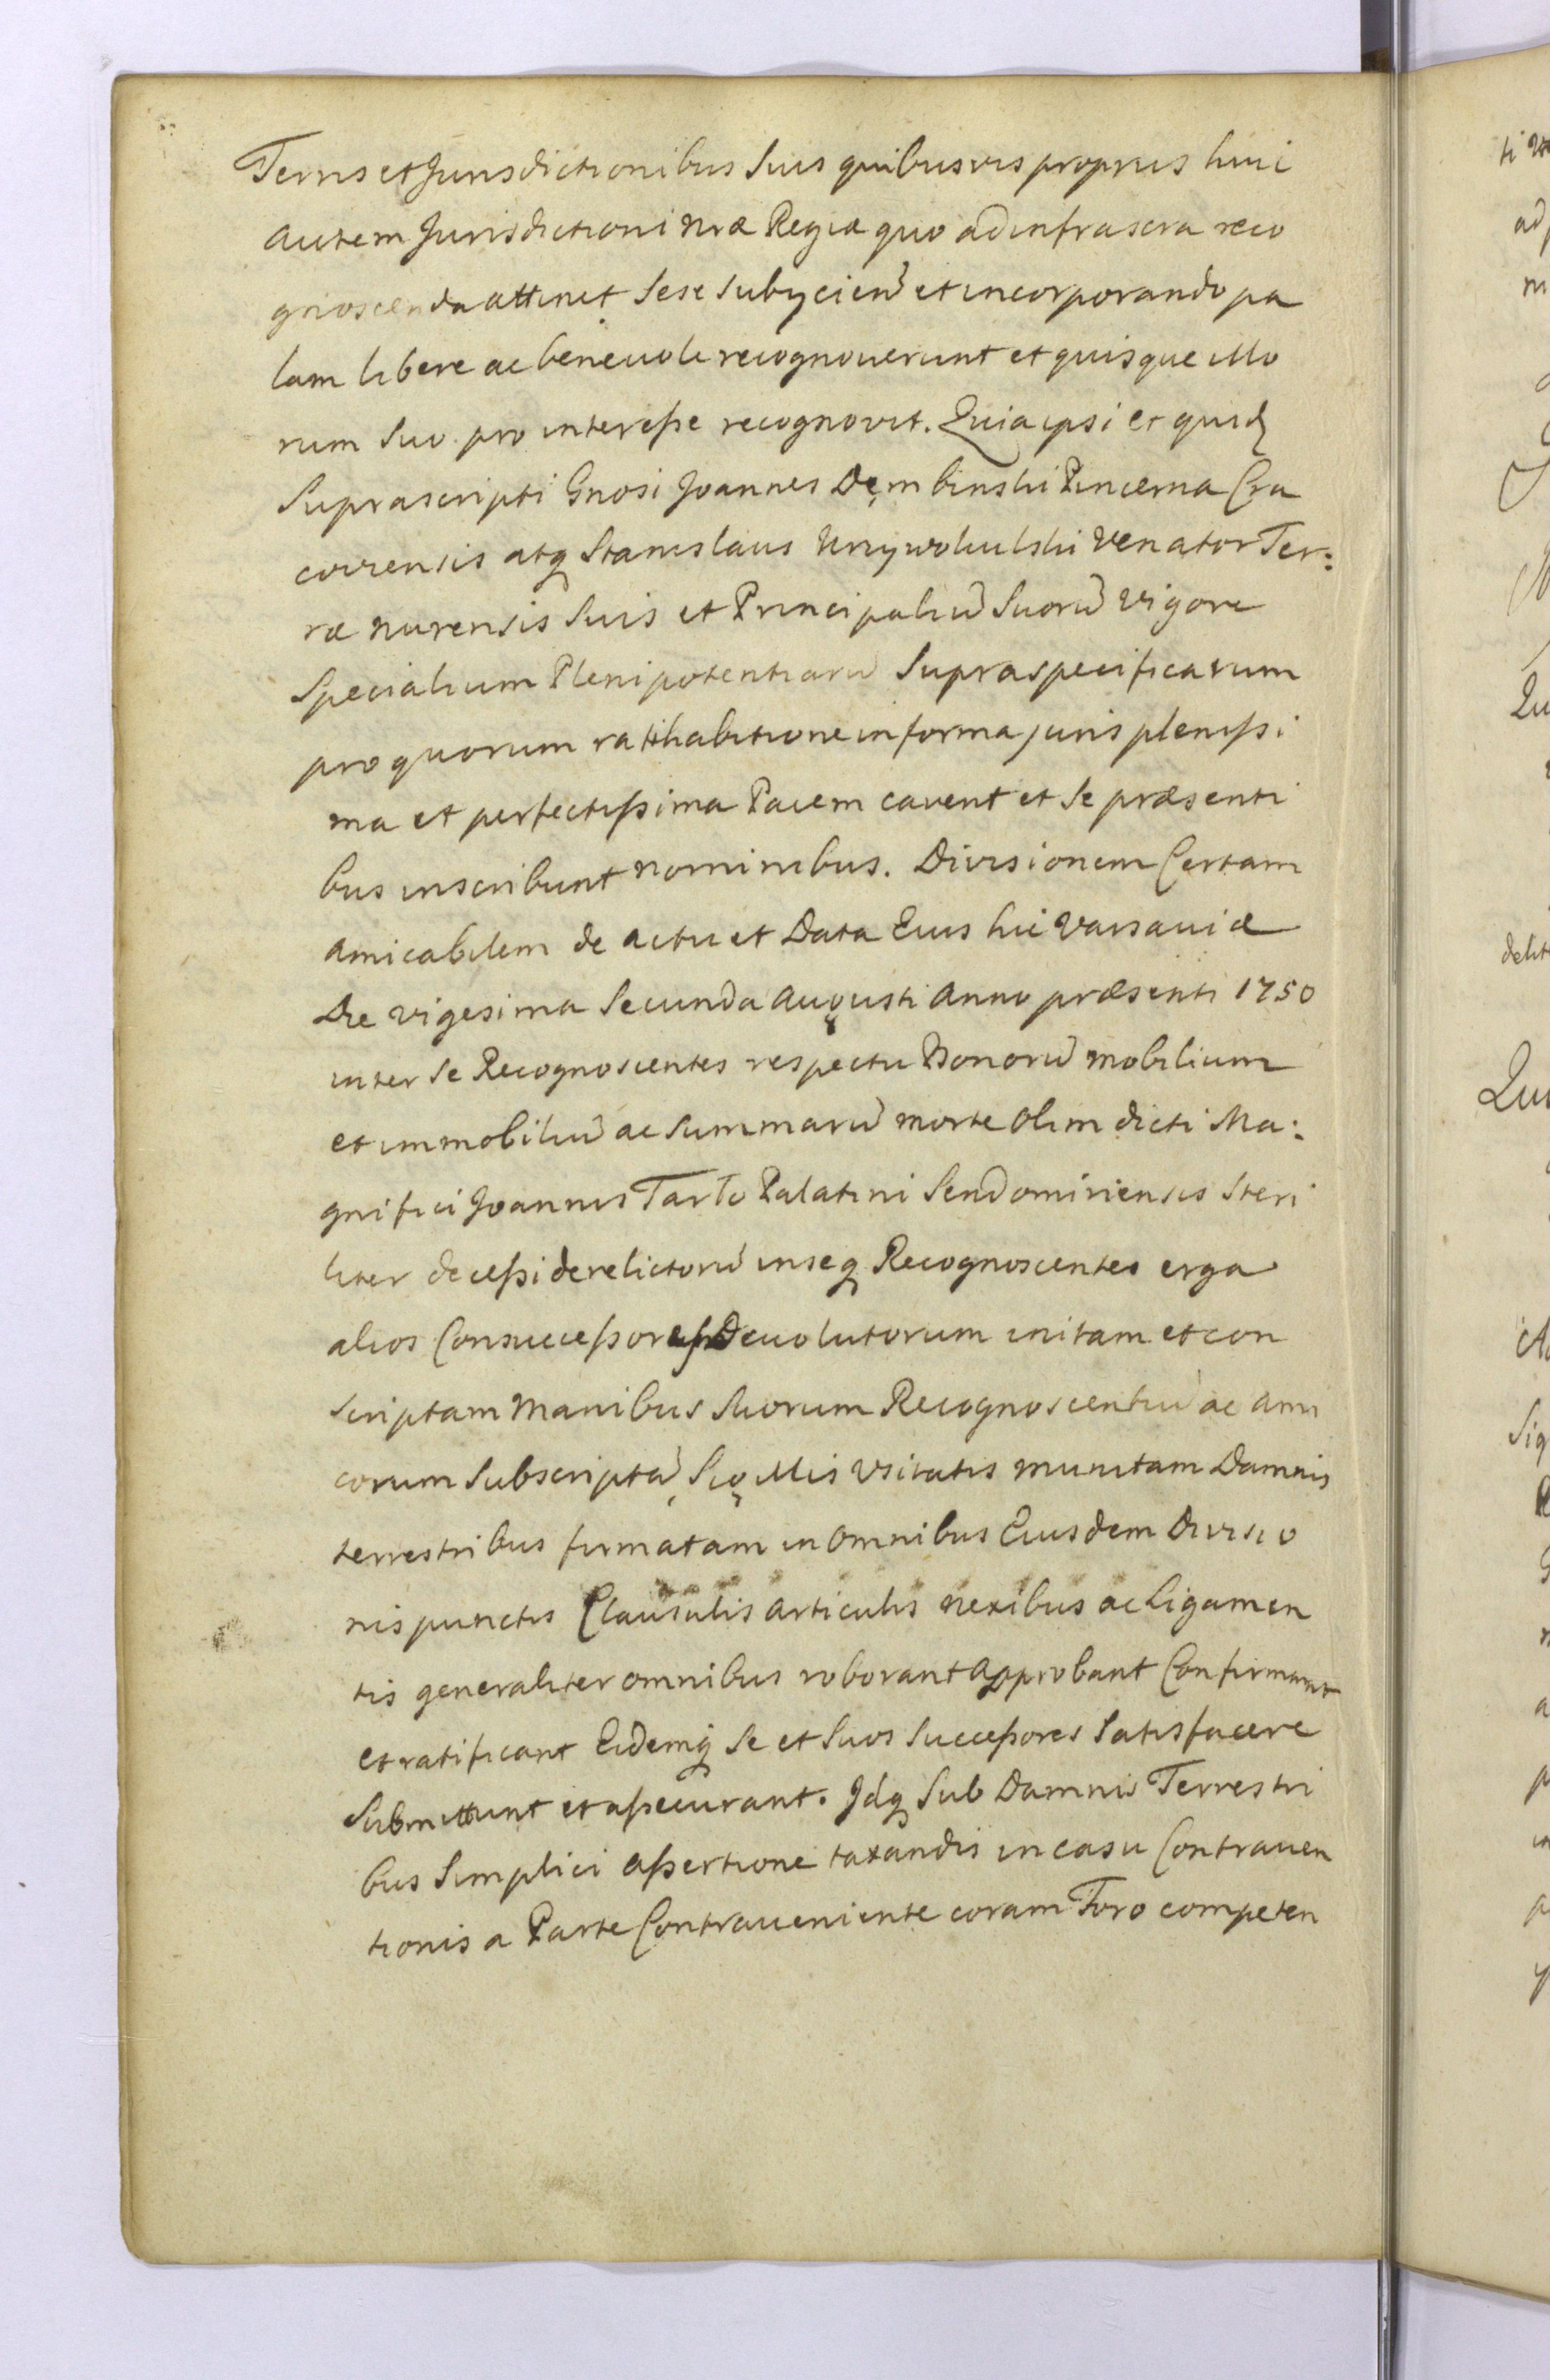 Terris et Jurisdictionibus Suis quibusvis proprijs huic
autem Jurisdictioni nræ Regiæ quo ad infrascra reco
gnoscenda attinet Sese Subyciend et incorporando pa
lam libere ac beneuole recognouerunt et quisque illo
rum Suo pro interesse recognovit. Quia ipsi et quid
Suprascripti Gnosi Joannes Dembinski Pincerna Cra
coviensis atq Stanislaus Venator Ter:
ræ nurensis Suis et Principaliu Suoru Vigore
Specialium Plenipotentiaru Supraspecificatum
pro quorum ratihabitione in forma juris plenissi
ma et perfectissima Pacem cavent et Se præsenti
bus inscribunt nominibus. Divisionem Certam
amicabilem de actu et Data Eius hic Varsauiæ
Die vigesima Secunda augusti Anno præsenti 1750
inter Se Recognoscentes respectu Bonoru mobilium
et immobiliu ac Summaru morte Olim dicti Ma:
gnifici Joannis Tarło Palatini Sendomiriensis Steri
liter decessi derelictoru inseq Recognoscentes erga
alios Consuccessores Deuolutorum initam et con
scriptam Manibus Suorum Recognoscentiu ac ami
corum Subscripta, Sigillis Vsitatis munitam Damnis
terrestribus firmatam in Omnibus Eiusdem Divisio
nis punctis Clausulis articulis nexibus ac Ligamen
tis generaliter omnibus roborant Approbant Confirmant
et ratificant Eidemq Se et Suos Successores Satisfacere
Submittunt et assecurant. Jdq Sub Damnis Terrestri
bus Simplici assertione taxandis in casu Contrauen
tionis a Parte Contraueniente coram Foro competen